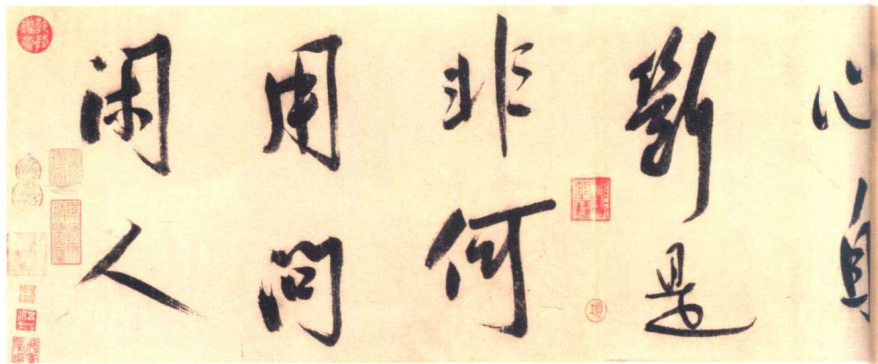 心自
斷是
非何
用問
閑人
項